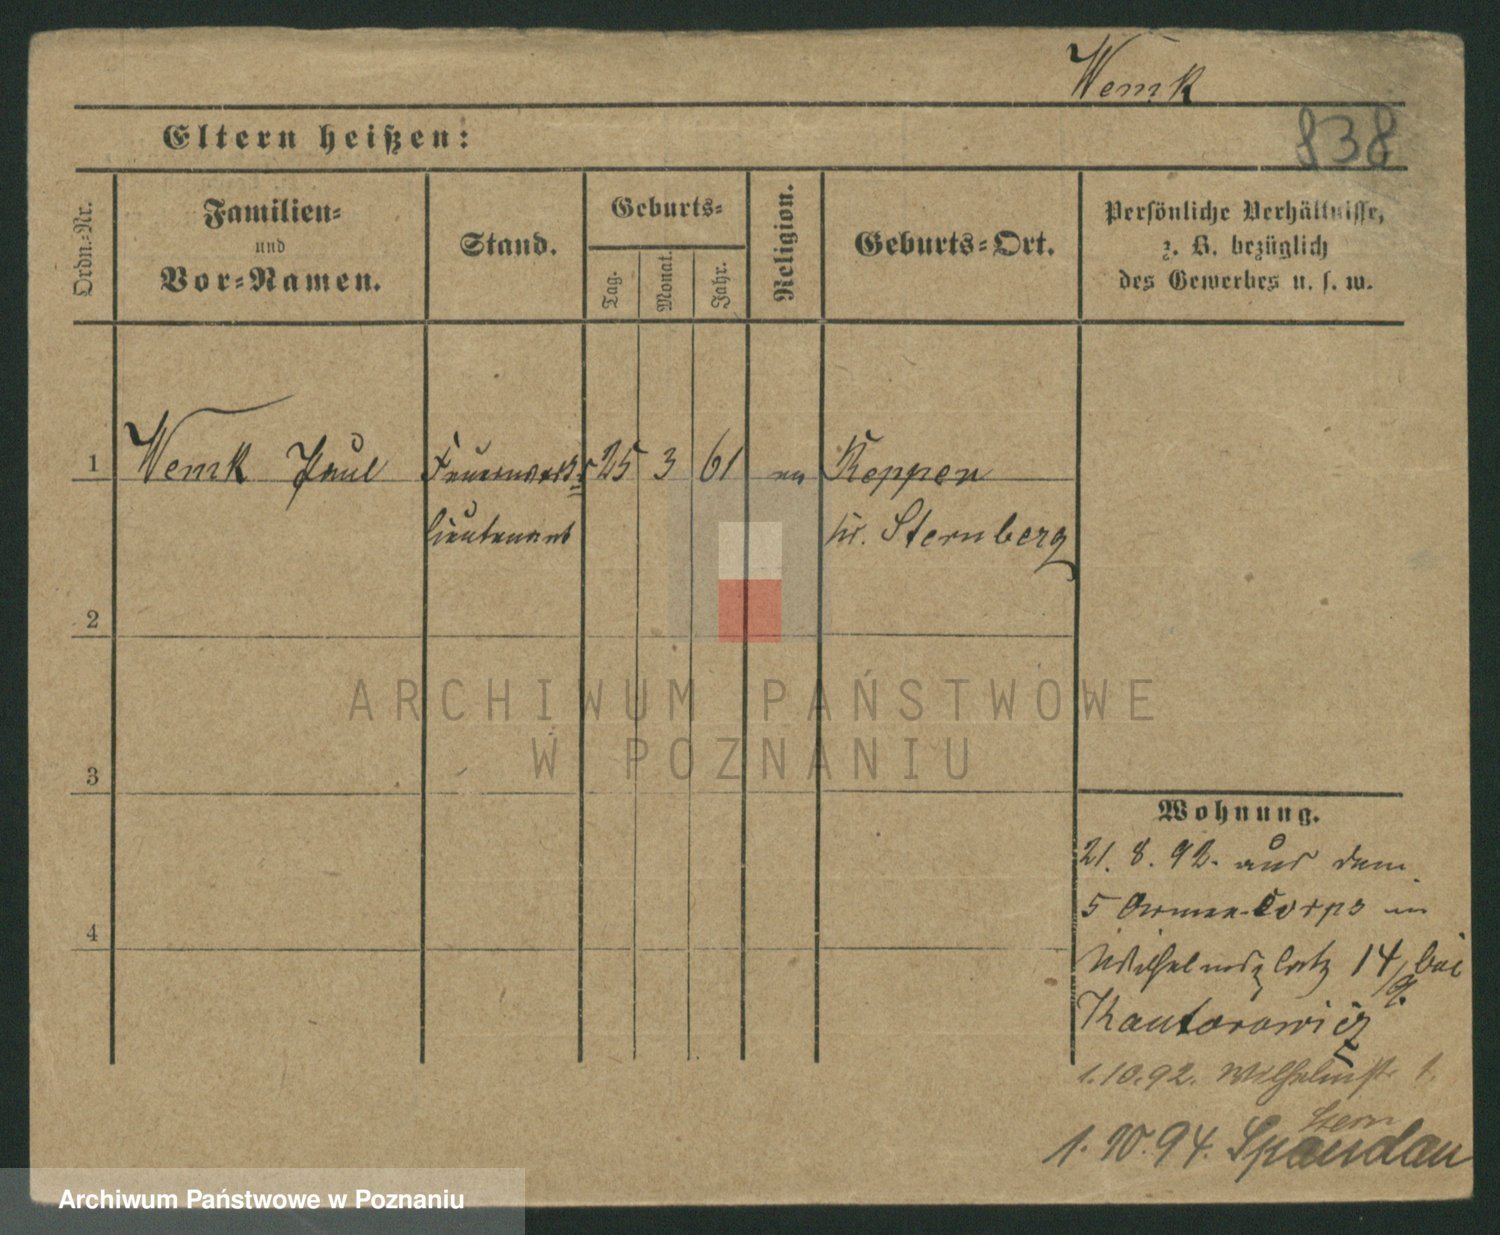 Wemk
838
Eltern heißen:
Ordn.-Nr.
Familien-
und
Vor-Namen.
Stand.
Geburts-
Tag.
Monat.
Jahr.
Religion.
Geburts-Ort.
Persönliche Verhältnisse,
z. B. bezüglich
des Gewerbes u. s. w.
1 Wemk Paul Feuerwerks- 25 3 61 ev Reppen
lieutenant Kr. Sternberg
2
3
4
Wohnung.
21. 8. 92. aus dem
5 Armee-Corps in
Wilhelmsplatz 14/ bei
Kantorowicz
1.10.92. Wilhelmstr 1.
Stern
1.10.94. Spandau
ARCHIWUM PAŃSTWOWE
W POZNANIU
Archiwum Państwowe w Poznaniu